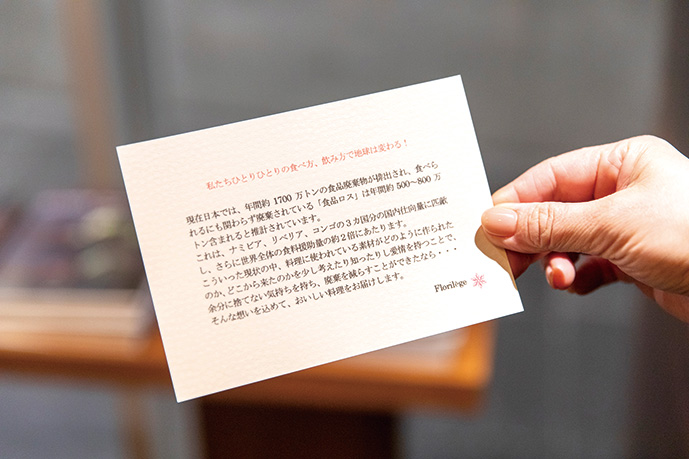 私たちひとりひとりの食べ方、飲み方で地球は変わる！
現在日本では、年間約1700 万トンの食品廃棄物が排出され、食べら
れるにも関わらず廃棄されている「食品ロス」は年間約500～800 万
トン含まれると推計されています。
これは、ナミビア、リベリア、コンゴの３カ国分の国内仕向量に匹敵
し、さらに世界全体の食料援助量の約２倍にあたります。
こういった現状の中、料理に使われている素材がどのように作られた
のか、どこから来たのかを少し考えたり知ったりし愛情を持つことで、
余分に捨てない気持ちを持ち、廃棄を減らすことができたなら・・・
そんな想いを込めて、おいしい料理をお届けします。
Florilège